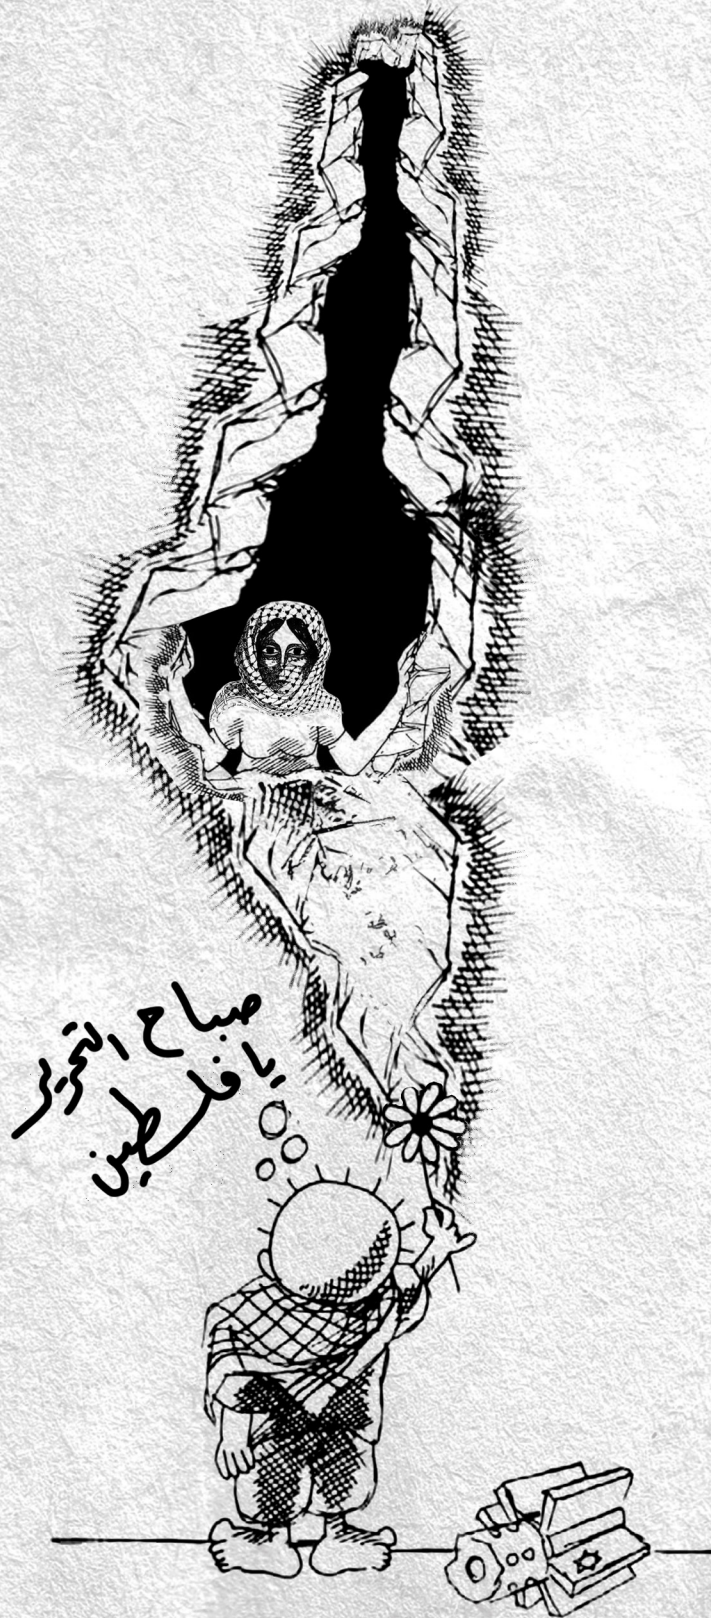 صباح التحرير
يا فلسطين